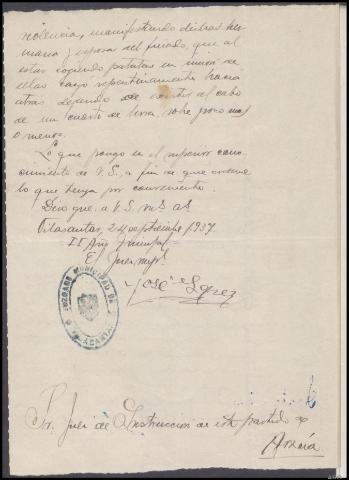 violencia, manifestando dichas her
mana y esposa del finado, que al
estar cogiendo patatas en unión de
ellas cayó repentinamente hacia
atras dejando de existir al cabo
de un cuarto de hora, sobre poco mas
o menos.
Lo que pongo en el superior cono-
cimiento de V.S., a fin de que ordene
lo que tenga por conveniente.
Dios gue. a V.S. ms. as.
Vilasantar, 24 septiembre 1937.
II Año Triunfal
El Juez mpl.
José Lopez
JUZGADO MUNICIPAL DE
Sr. Juez de Instruccion de este partido de
Arzúa.